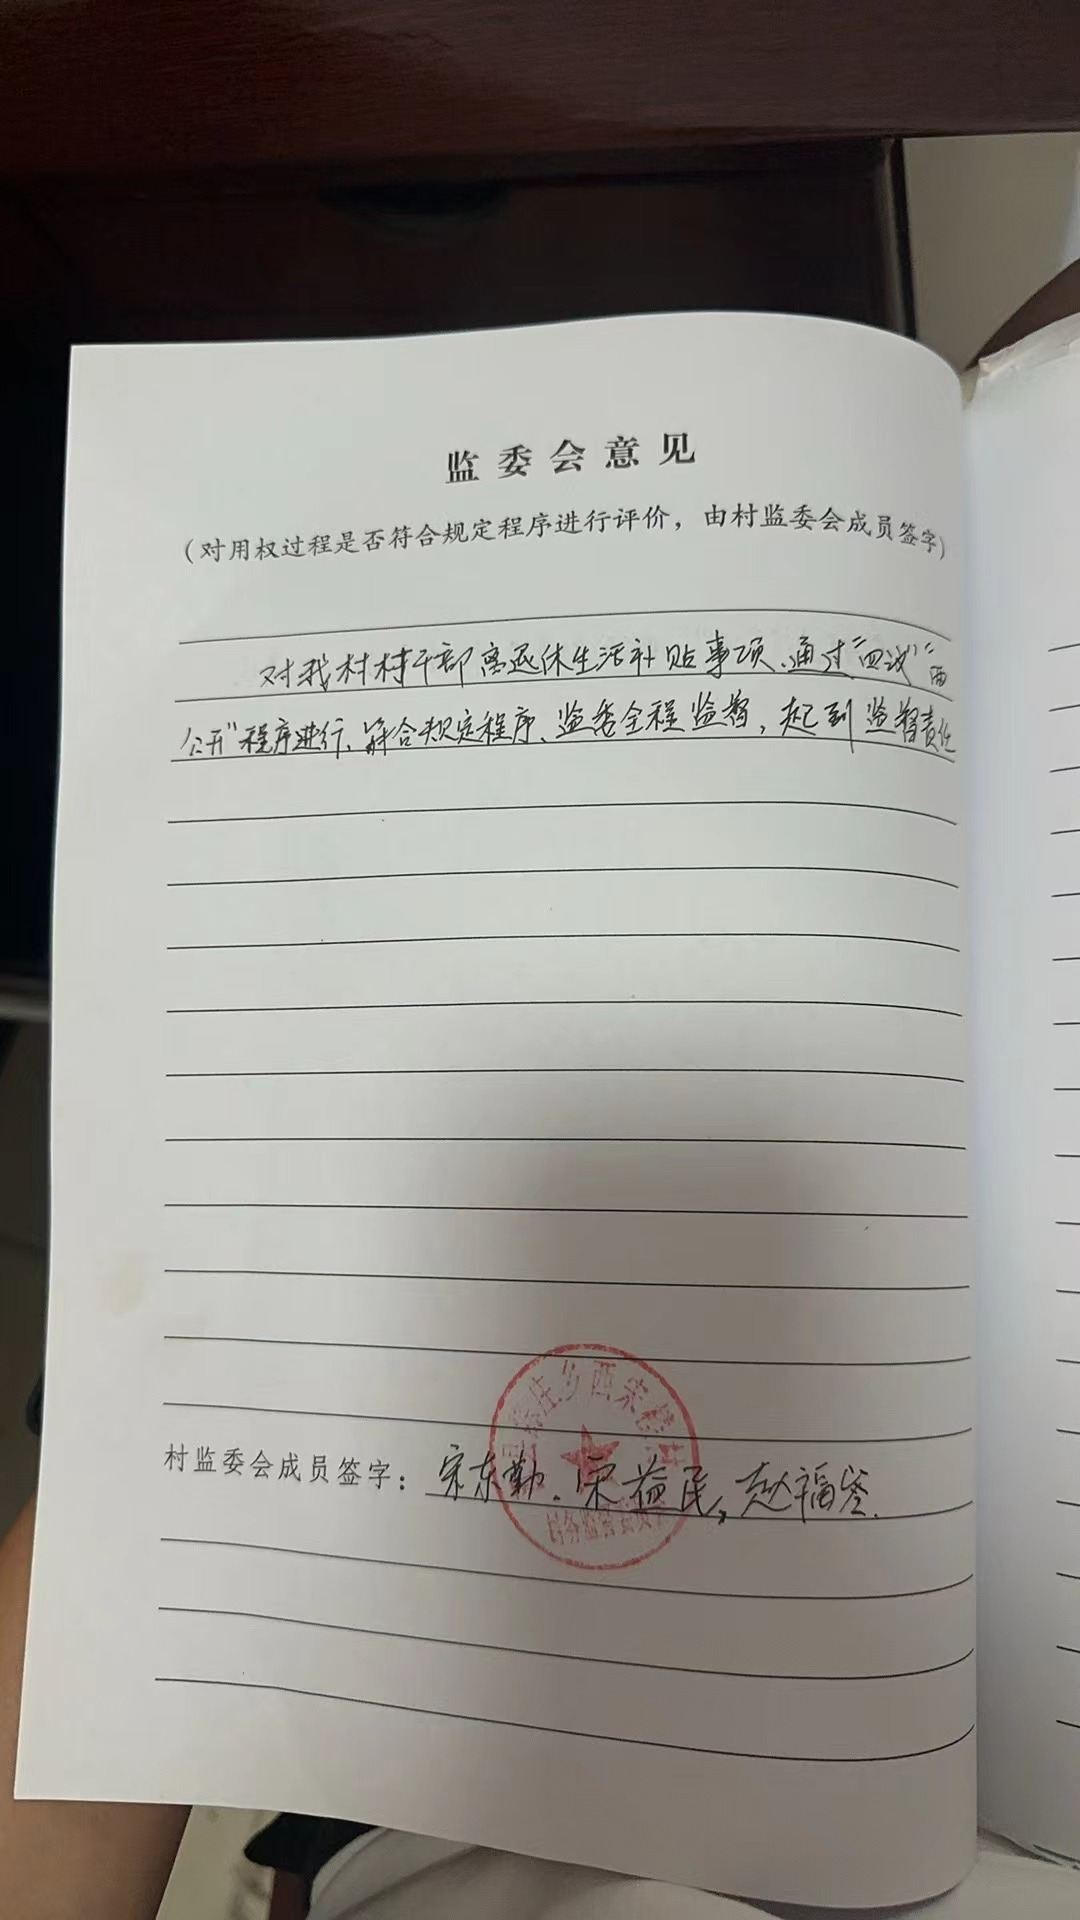 监委会意见
(对用权过程是否符合规定程序进行评价，由村监委会成员签字)
对我村村干部离退休生活补贴事项、通过“四议”“两
公开”程序进行、符合规定程序、监委全程监督，起到监督责任
庄乡西宋楼村
村监委会成员签字：宋东勤、宋益民，赵福
村务监督委员会